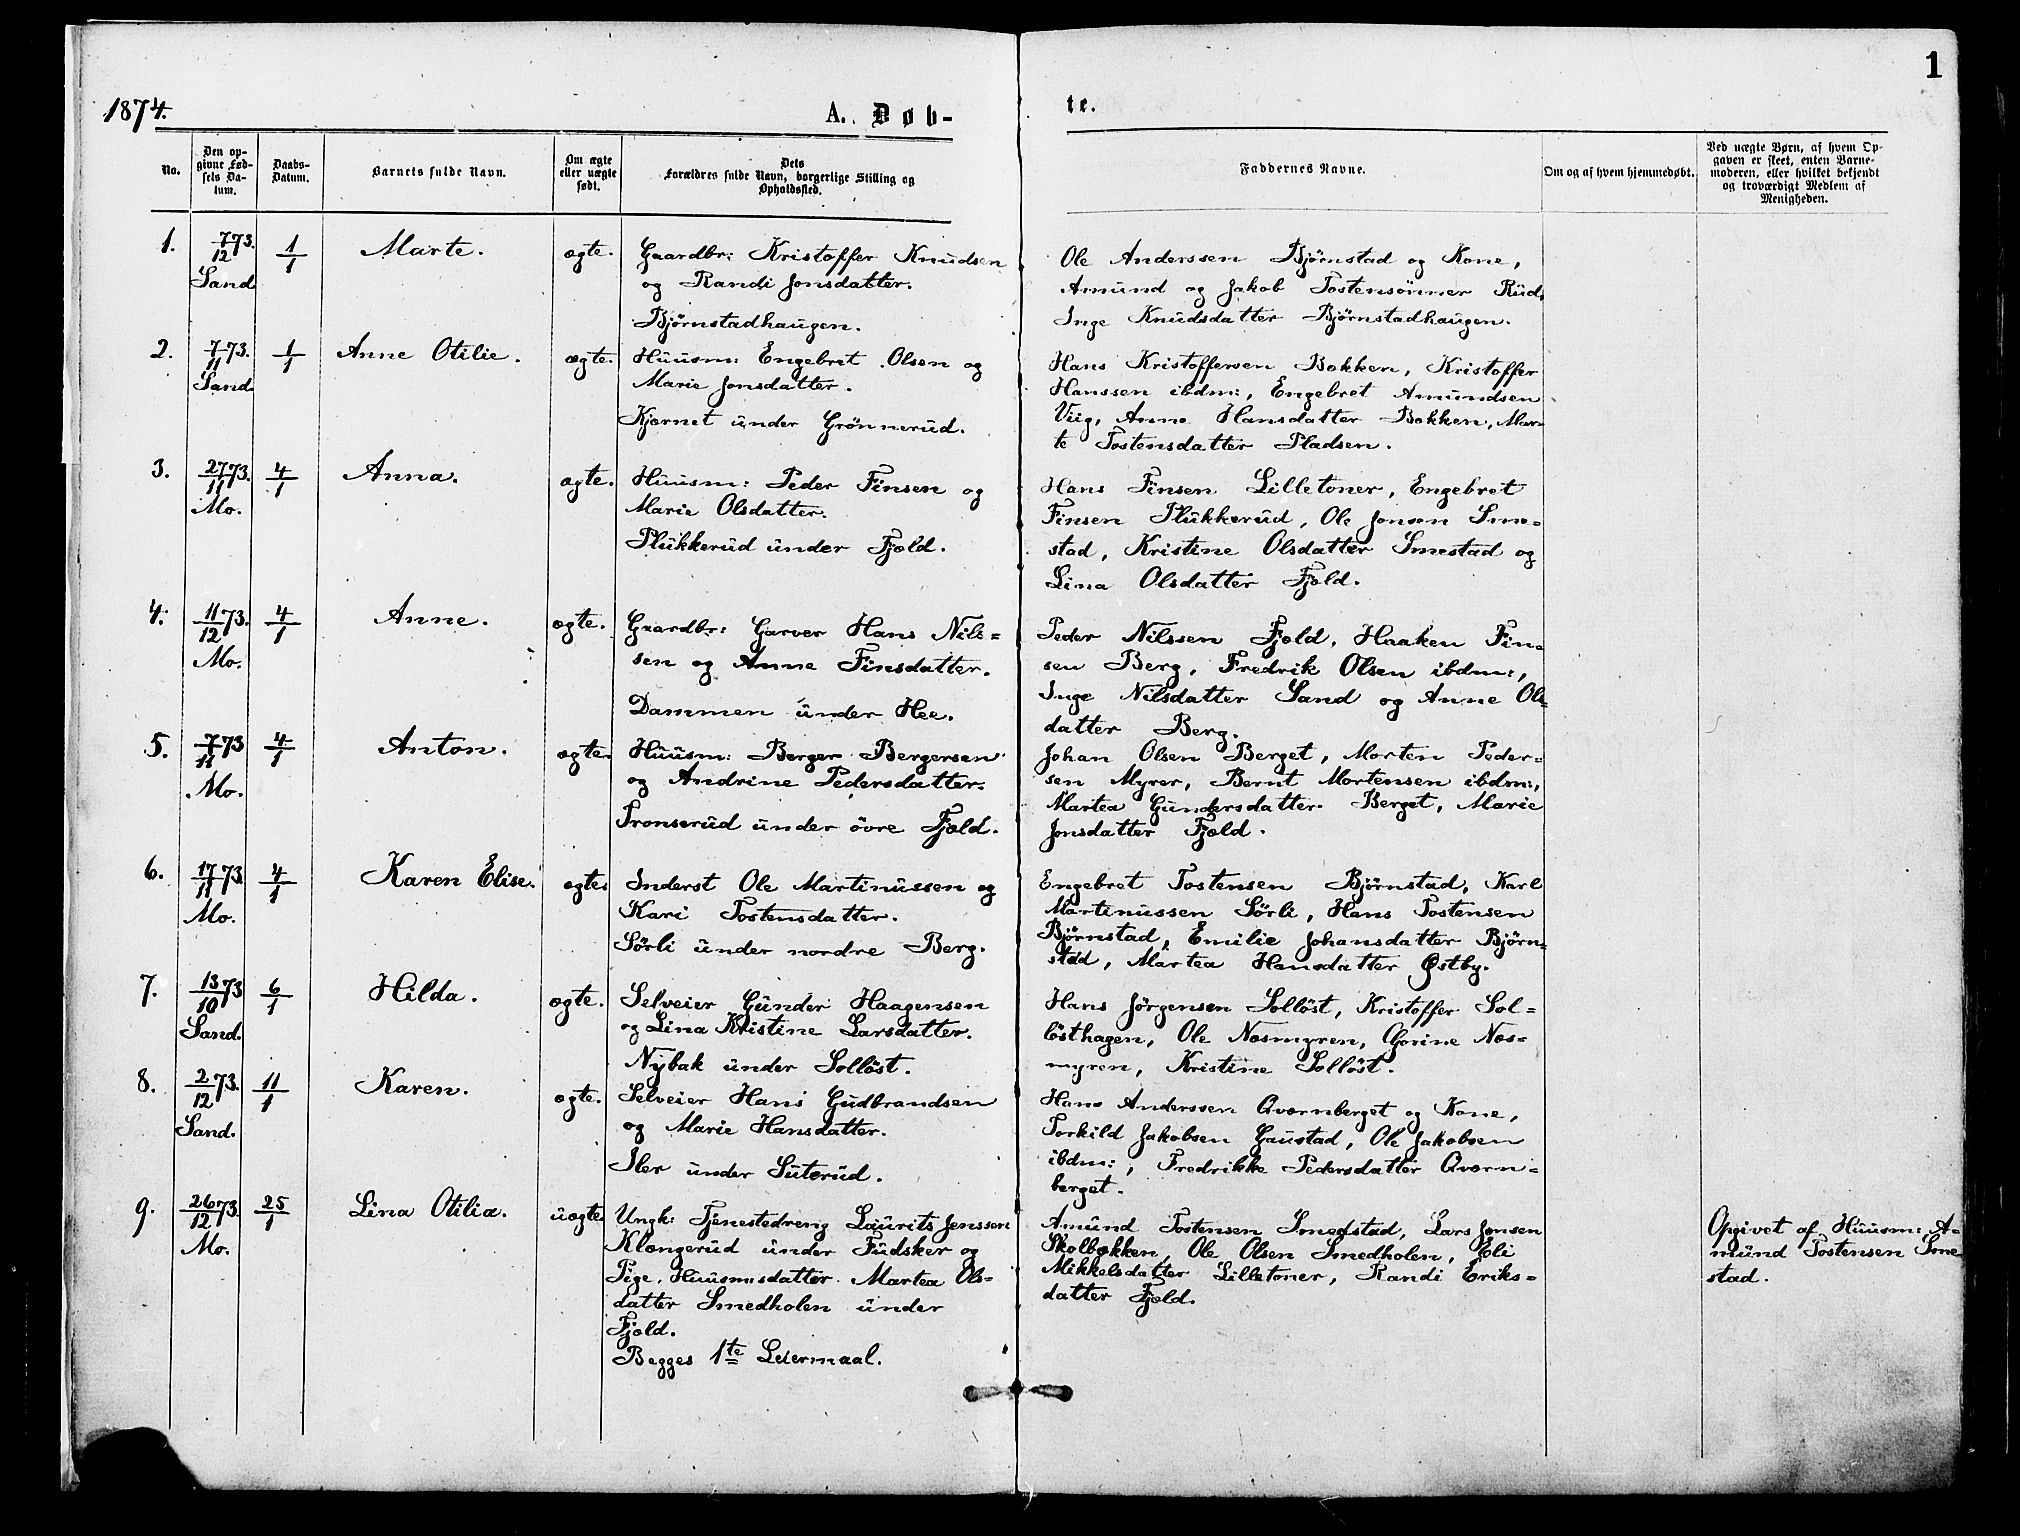 1
1874.
A. Døb-
te.
No.
Den op-
givne Fød-
sels Da-
tum.
Daabs-
Datum.
Barnets fulde Navn.
Om ægte
eller uægte
født.
Dets
Forældres fulde Navn, borgerlige Stilling og
Opholdssted.
Faddernes Navne.
Om og af hvem hjemmedøbt.
Ved uægte Børn, af hvem Op-
gaven er skeet, enten Barne-
moderen, eller hvilket bekjendt
og troværdigt Medlem af
Menigheden.
1.
7/12 73.
Sand.
1/1
Marte.
ægte.
Gaardbr: Kristoffer Knudsen
og Randi Jonsdatter.
Bjørnstadhaugen.
Ole Anderssen Bjørnstad og Kone,
Amund og Jakob Tostensönner Rud,
Inge Knudsdatter Bjørnstadhaugen.
2.
7/11 73.
Sand.
1/1
Anne Otilie.
ægte.
Huusm: Engebret Olsen og
Marie Jonsdatter.
Kjærnet under Grönnerud.
Hans Kristoffersen Bakken, Kristoffer
Hanssen ibdm:, Engebret Amundsen
Viig, Anne Hansdatter Bakken, Mar-
te Tostensdatter Pladsen.
3.
27/11 73.
Mo.
4/1
Anna.
ægte.
Huusm: Peder Finsen og
Marie Olsdatter.
Plukkerud under Fjeld.
Hans Finsen Lilletoner, Engebret
Finsen Plukkerud, Ole Jonsen Sme=
stad, Kristine Olsdatter Smestad og
Lina Olsdatter Fjeld.
4.
11/12 73.
Mo.
4/1
Anne.
ægte.
Gaardbr: Garver Hans Nils=
sen og Anne Finsdatter.
Dammen under Hee.
Peder Nilssen Fjeld, Haaken Fin=
sen Berg, Fredrik Olsen ibdm:,
Inge Nilsdatter Sand og Anne Ols=
datter Berg.
5.
7/11 73
Mo.
4/1
Anton.
ægte.
Huusm: Berger Bergersen
og Andrine Pedersdatter.
Tronserud under övre Fjeld.
Johan Olsen Berget, Morten Peder=
sen Myrer, Bernt Mortensen ibdm:,
Martea Gundersdatter Berget, Marie
Jonsdatter Fjeld.
6.
17/11 73
Mo.
4/1
Karen Elise.
ægte.
Inderst Ole Martinussen og
Kari Tostensdatter.
Sörli under nordre Berg.
Engebret Tostensen Bjørnstad, Karl
Martinussen Sörli, Hans Tostensen
Bjørnstad, Emilie Johansdatter Bjørn=
stad, Martea Hansdatter Østby.
7.
13/10 73
Sand.
6/1
Hilda.
ægte.
Selveier Gunder Haagensen
og Lina Kristine Larsdatter.
Nybak under Sollöst.
Hans Jörgensen Sollöst, Kristoffer Sol=
lösthagen, Ole Næsmyren, Gorine Næs=
myren, Kristine Sollöst.
8.
2/12 73.
Sand.
11/1
Karen.
ægte.
Selveier Hans Gudbrandsen
og Marie Hansdatter.
Iler under Suterud.
Hans Anderssen Qværnberget og Kone,
Torkild Jakobsen Gaustad, Ole Jakobsen
ibdm:, Fredrikke Pedersdatter Qværn=
berget.
9.
26/12 73.
Mo.
25/1
Lina Otilia.
uægte
Ungk: Tjenestedreng Laurits Jenssen
Klængerud under Fudsker og
Pige, Huusmsdatter Martea Ols=
datter Smedholen under
Fjeld.
Begges 1te Leiermaal.
Amund Tostensen Smedstad, Lars Jensen
Skolbækken, Ole Olsen Smedholen, Eli
Mikkelsdatter Lilletoner, Randi Eriks=
datter Fjeld.
Opgivet af Huusm: A=
mund Tostensen Sme
stad.